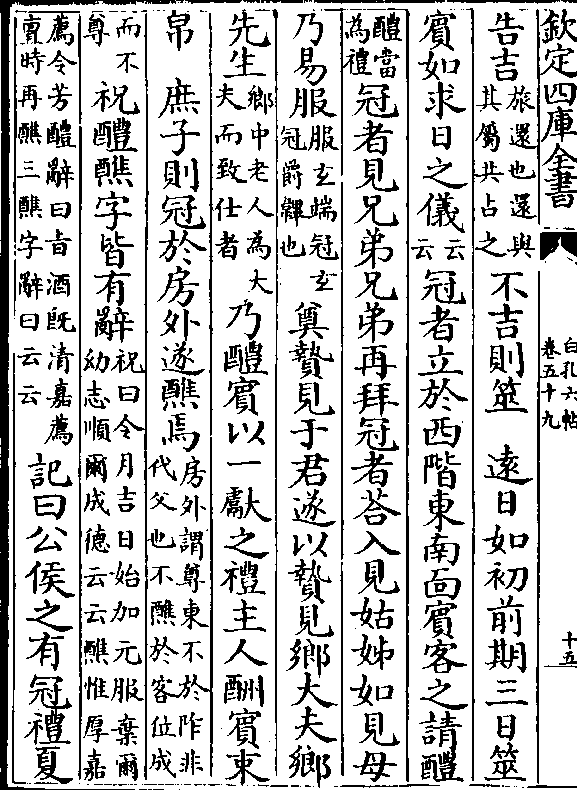 欽定四庫全書
白孔六帖
卷五十九
十五
告吉旅還也還與其屬共占之不吉則筮 遠日如初前期三日筮
賓如求日之儀云云冠者立於西階東南靣賓客之請醴
醴當為禮冠者見兄弟兄弟再拜冠者荅入見姑姊如見母
乃易服服玄端冠玄冠爵韠也奠贄見于君遂以贄見鄉大夫鄉
先生鄉中老人為大夫而致仕者乃醴賓以一獻之禮主人酬賓束
帛 庶子則冠於房外遂醮焉房外謂尊東不於阼非代父也不醮於客位成
而不尊祝醴醮字皆有辭祝曰令月吉日始加元服棄爾幼志順爾成德云云醮惟厚嘉
薦令芳醴辭曰旨酒既清嘉薦亶時再醮三醮字辭曰云云 記曰公侯之有冠禮夏